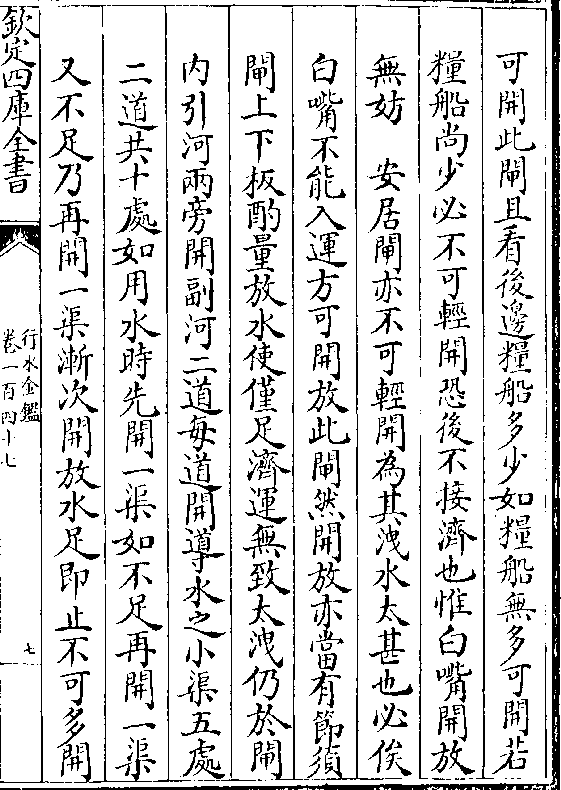 可開此閘且看後邊糧船多少如糧船無多可開若
糧船尚少必不可輕開恐後不接濟也惟白嘴開放
無妨　安居閘亦不可輕開為其洩水太甚也必俟
白嘴不能入運方可開放此閘然開放亦當有節須
閘上下板酌量放水使僅足濟運無致太洩仍於閘
内引河兩旁開副河二道每道開導水之小渠五處
二道共十處如用水時先開一渠如不足再開一渠
又不足乃再開一渠漸次開放水足即止不可多開
欽定四庫全書
行水金鑑
卷一百四十七
七